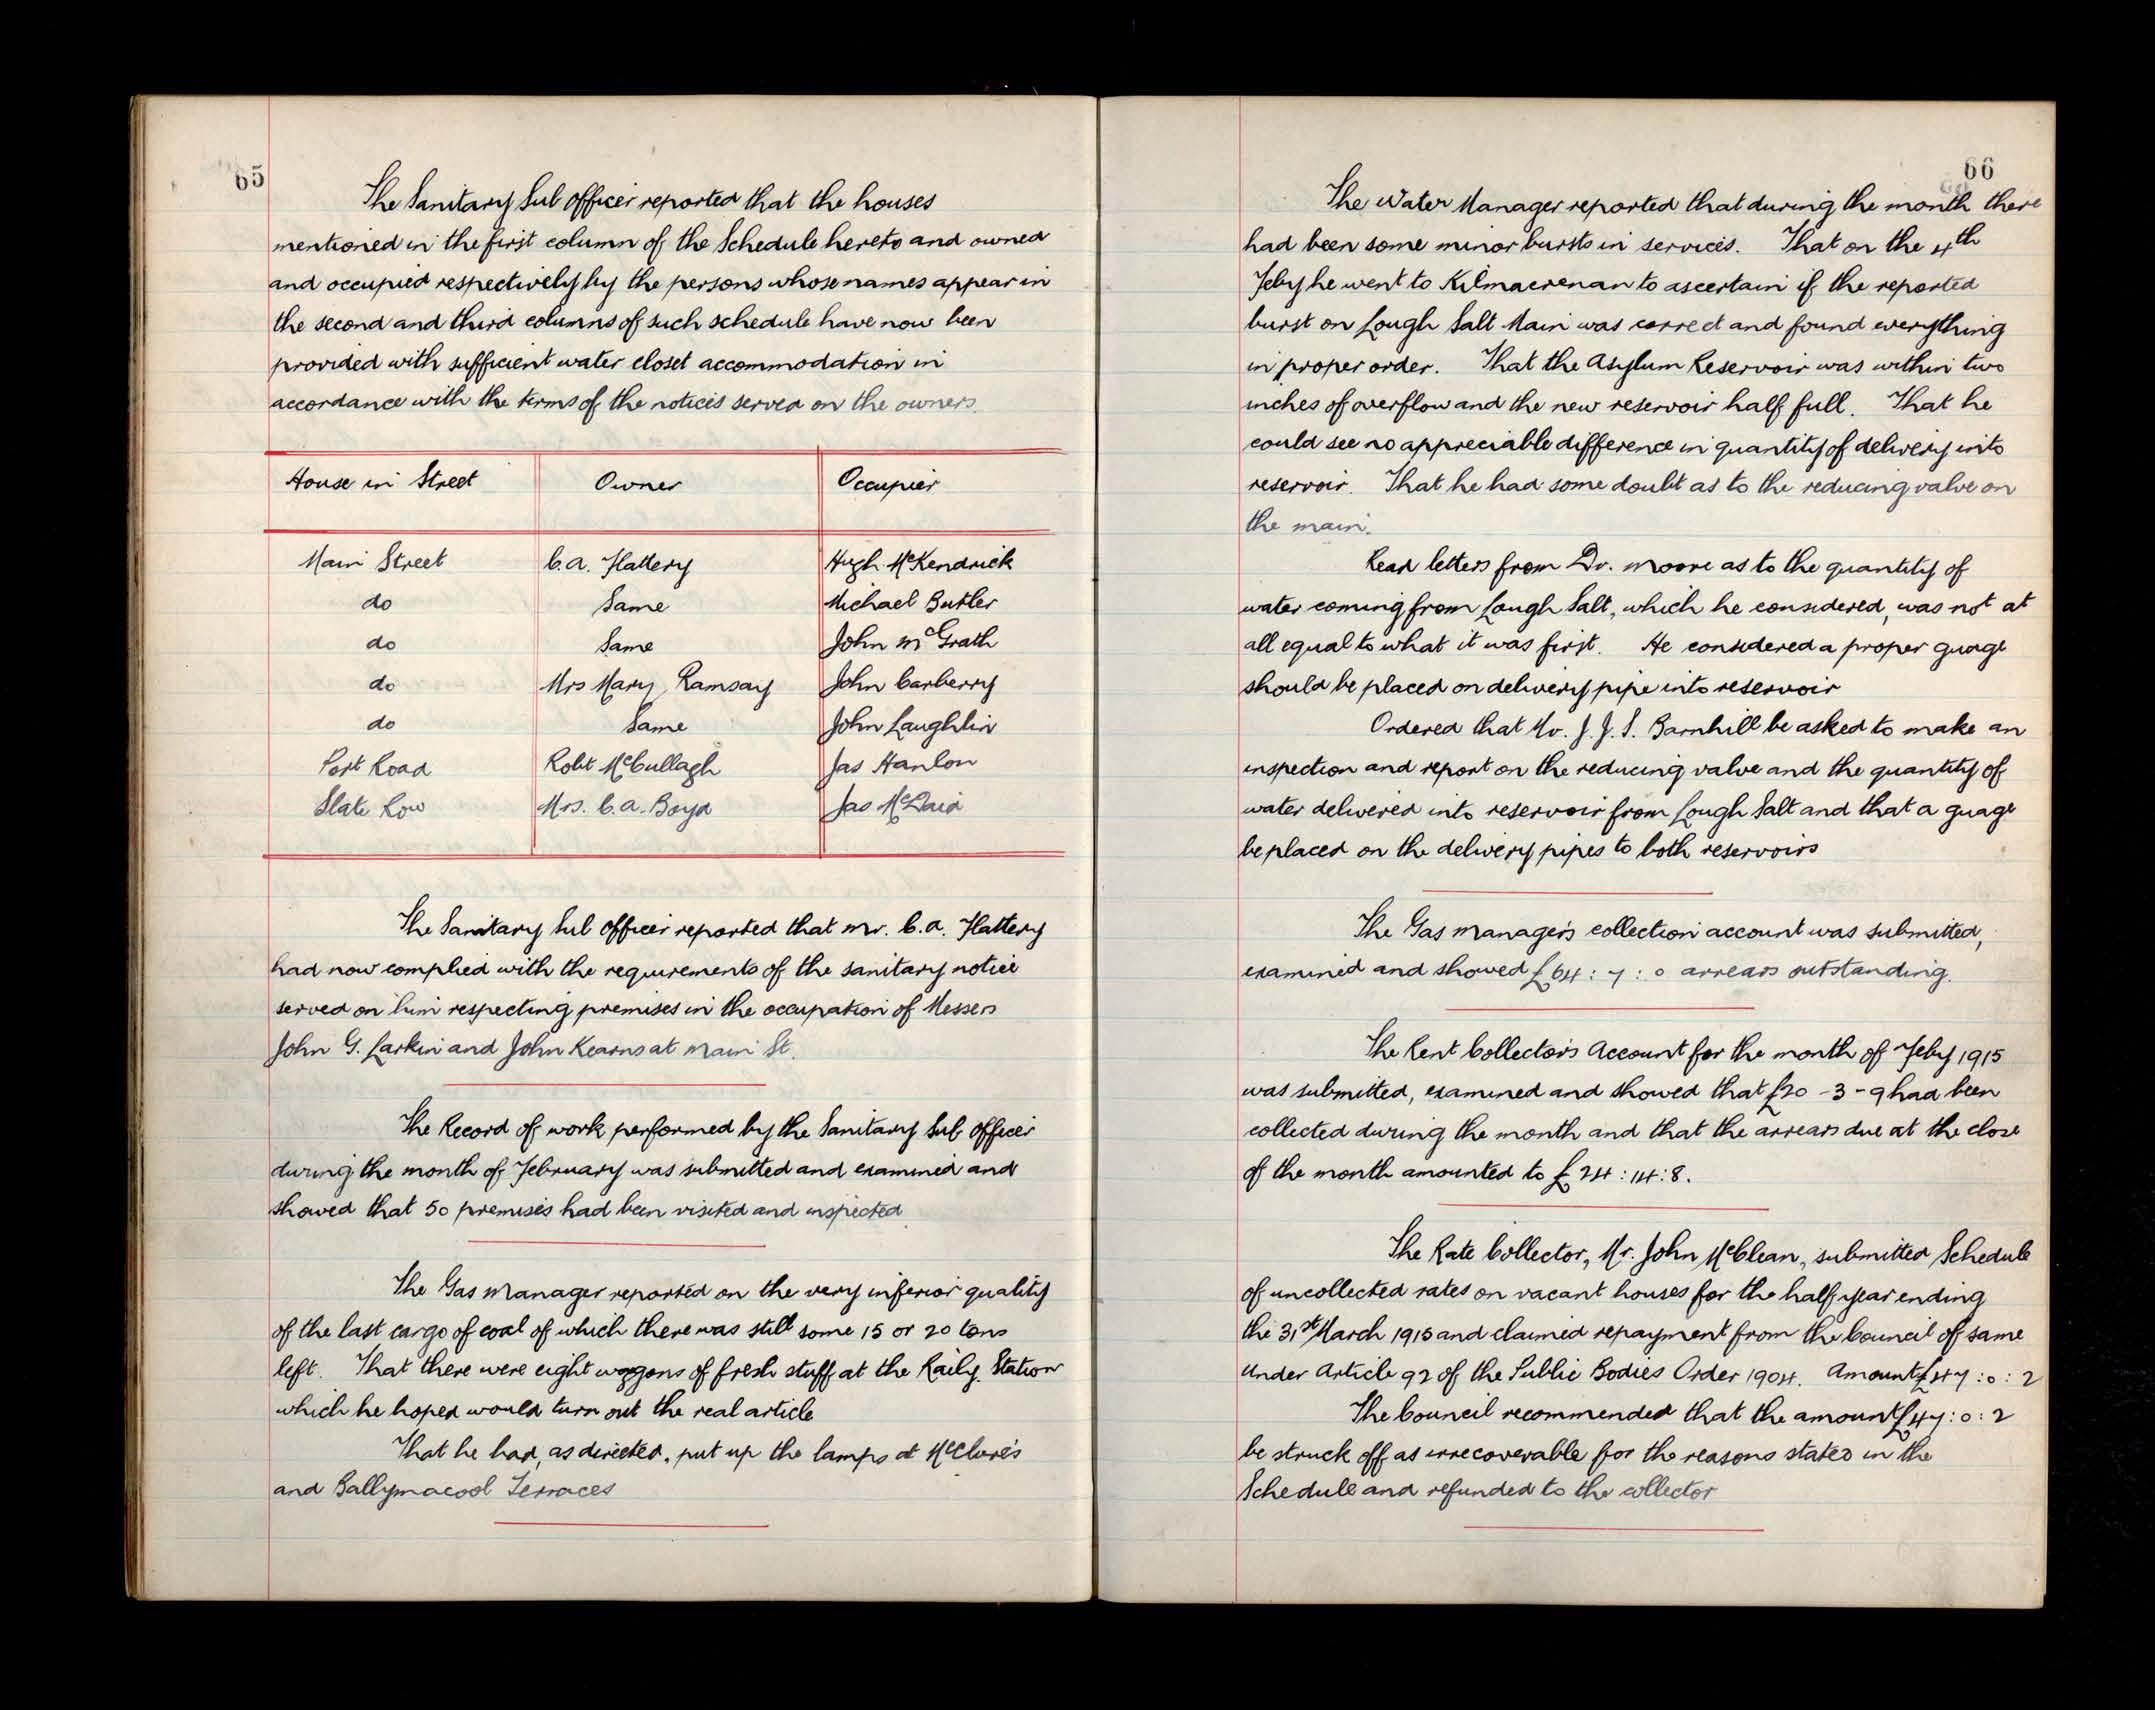 65
The Sanitary Sub Officer reported that the houses
mentioned in the first column of the Schedule hereto and owned
and occupied respectively by the persons whose names appear in
the second and third columns of such schedule have now been
provided with sufficient water closet accommodation in
accordance with the terms of the notices served on the owners.
House in Street Owner Occupier
Main Street C.A. Flattery Hugh McKendrick
do Same Michael Butler
do Same John McGrath
do Mrs Mary Ramsay John Carberry
do Same John Laughlin
Port Road Robt McCullagh Jas Hanlon
Slate Row Mrs. C.A. Boyd Jas McDaid
The Sanitary Sub Officer reported that Mr. C.A. Flattery
had now complied with the requirements of the sanitary notice
served on him respecting premises in the occupation of Messers
John G. Larkin and John Kearns at Main St.
The Record of work performed by the Sanitary Sub Officer
during the month of February was submitted and examined and
showed that 50 premises had been visited and inspected.
The Gas Manager reported on the very inferior quality
of the last cargo of coal of which there was still some 15 or 20 tons
left. That there were eight waggons of fresh stuff at the Raily. Station
which he hoped would turn out the real article
That he had, as directed, put up the lamps at McClure's
and Ballymacool Terraces
66
The Water Manager reported that during the month there
had been some minor bursts in services. That on the 4th
Feby he went to Kilmacrenan to ascertain if the reported
burst on Lough Salt Main was correct and found everything
in proper order. That the Asylum Reservoir was within two
inches of overflow and the new reservoir half full. That he
could see no appreciable difference in quantity of delivery into
reservoir. That he had some doubt as to the reducing valve on
the main.
Read letters from Dr. Moore as to the quantity of
water coming from Lough Salt, which he considered, was not at
all equal to what it was first. He considered a proper guage
should be placed on delivery pipe into reservoir
Ordered that Mr. J. J. S. Barnhill be asked to make an
inspection and report on the reducing valve and the quantity of
water delivered into reservoir from Lough Salt and that a guage
be placed on the delivery pipes to both reservoirs
The Gas Manager's collection account was submitted,
examined and showed £64 : 7 : 0 arrears outstanding.
The Rent Collector's Account for the month of Feby 1915
was submitted, examined and showed that £20 - 3 - 9 had been
collected during the month and that the arrears due at the close
of the month amounted to £24 : 14 : 8.
The Rate Collector, Mr. John McClean, submitted Schedule
of uncollected rates on vacant houses for the half year ending
the 31st March 1915 and claimed repayment from the Council of same
under Article 92 of the Public Bodies Order 1904. Amount £47 : 0 : 2
The Council recommended that the amount £47 : 0 : 2
be struck off as irrecoverable for the reasons stated in the
Schedule and refunded to the collector